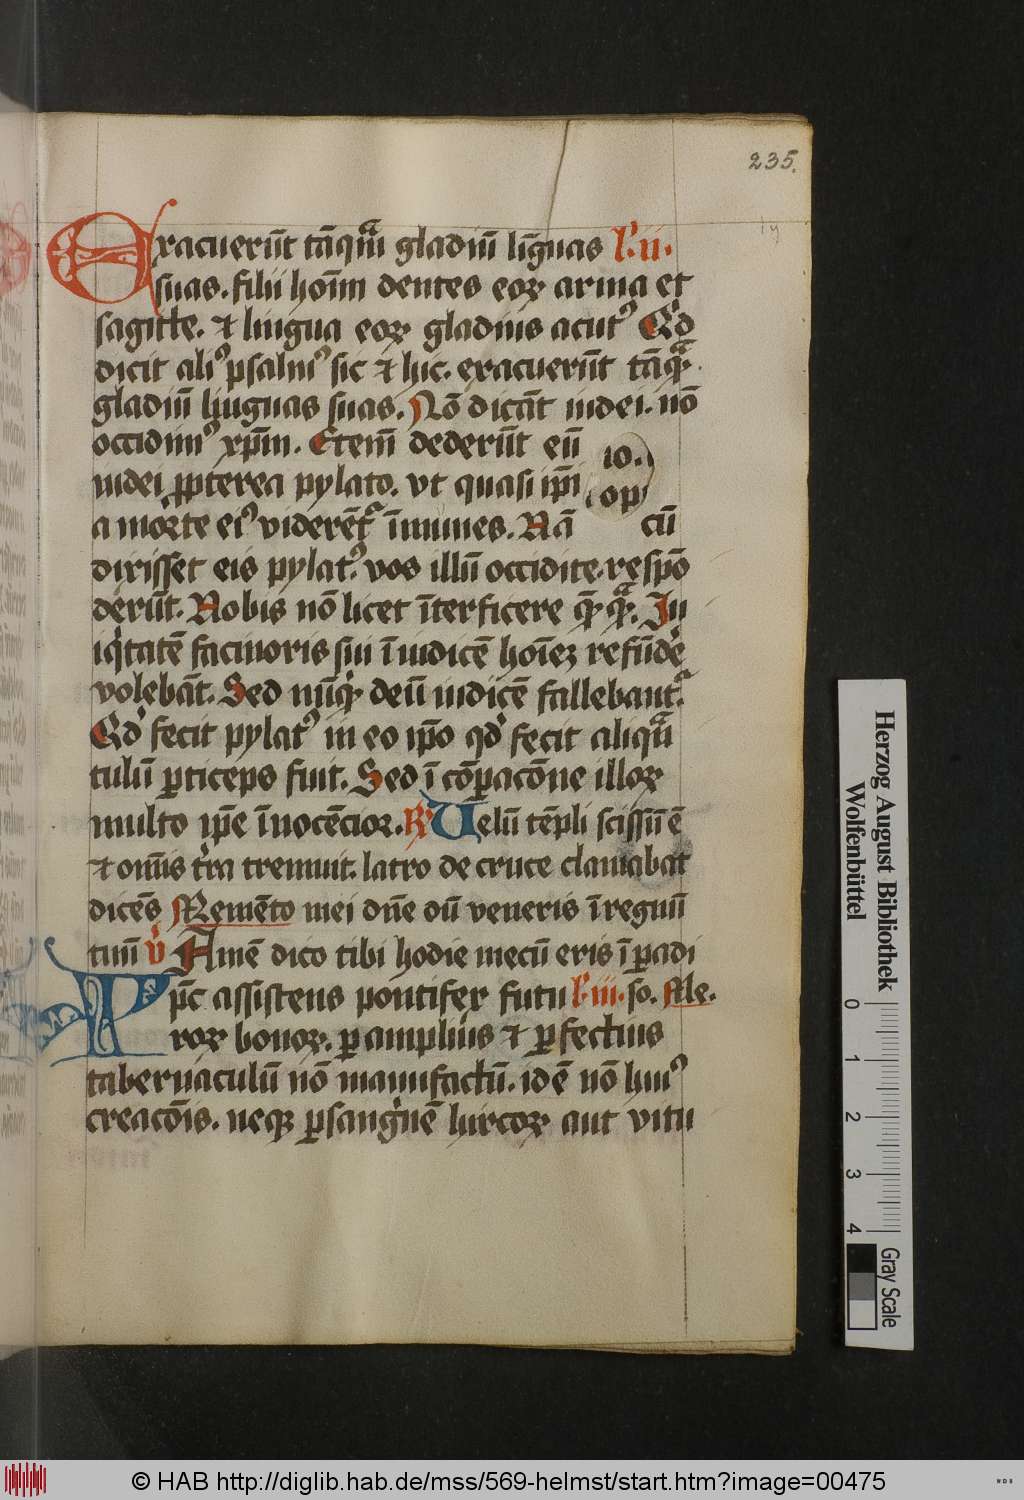 235.
Exacuerūt tāqᵃm̄ gladiū līguas l'. ii.
suas. filii hoīm dentes eoꝝ arma et
sagitte. ⁊ lingua eoꝝ gladius acutꝰ Qd̓
dicit aliꝰ psalmꝰ sic ⁊ hic. exacuerūt tāqᵃ
gladiū linguas suas. Nō dicāt iudei. nō
occidimꝰ xp̄m. Etem̄ dederūt eū
iudei ꝓpterea pylato. vt quasi ip̄i
a morte eiꝰ viderēt᷑ īmunes. Nā cū
dixisset eis pylatꝰ. vos illū occidite. respō
derūt. Nobis nō licet īterficere qm̄qᵃ. In
iq̇tatē facinoris sui ī iudicē hoīeꝫ refūde̓
volebāt. Sed nūq̇d deū iudicē fallebant.
Qd̓ fecit pylatꝰ in eo ip̄o qd̓ fecit aliqᵃn
tulū ꝑticeps fuit. Sed ī cōpacōne illoꝝ
multo ip̄e īnocēcior. R̷ Uelū tēpli scissū ē
⁊ om̄is tr̄a tremuit. latro de cruce clamabat
dicēs Memēto mei dn̄e dū veneris ī regnū
tuū v̓ Amē dico tibi hodie mecū eris ī ꝑadi
Xp̄c assistens pontifex futu l'. iii. so. Me.
roꝝ bonoꝝ. ꝑ amplius ⁊ ꝑfectius
tabernaculū nō manufactū. id ē nō huiꝰ
creacōis. neqꝫ ꝑ sanguinē hircoꝝ aut vitu
Herzog August Bibliothek
Wolfenbüttel
0 1 2 3 4
Gray Scale
© HAB http://diglib.hab.de/mss/569-helmst/start.htm?image=00475